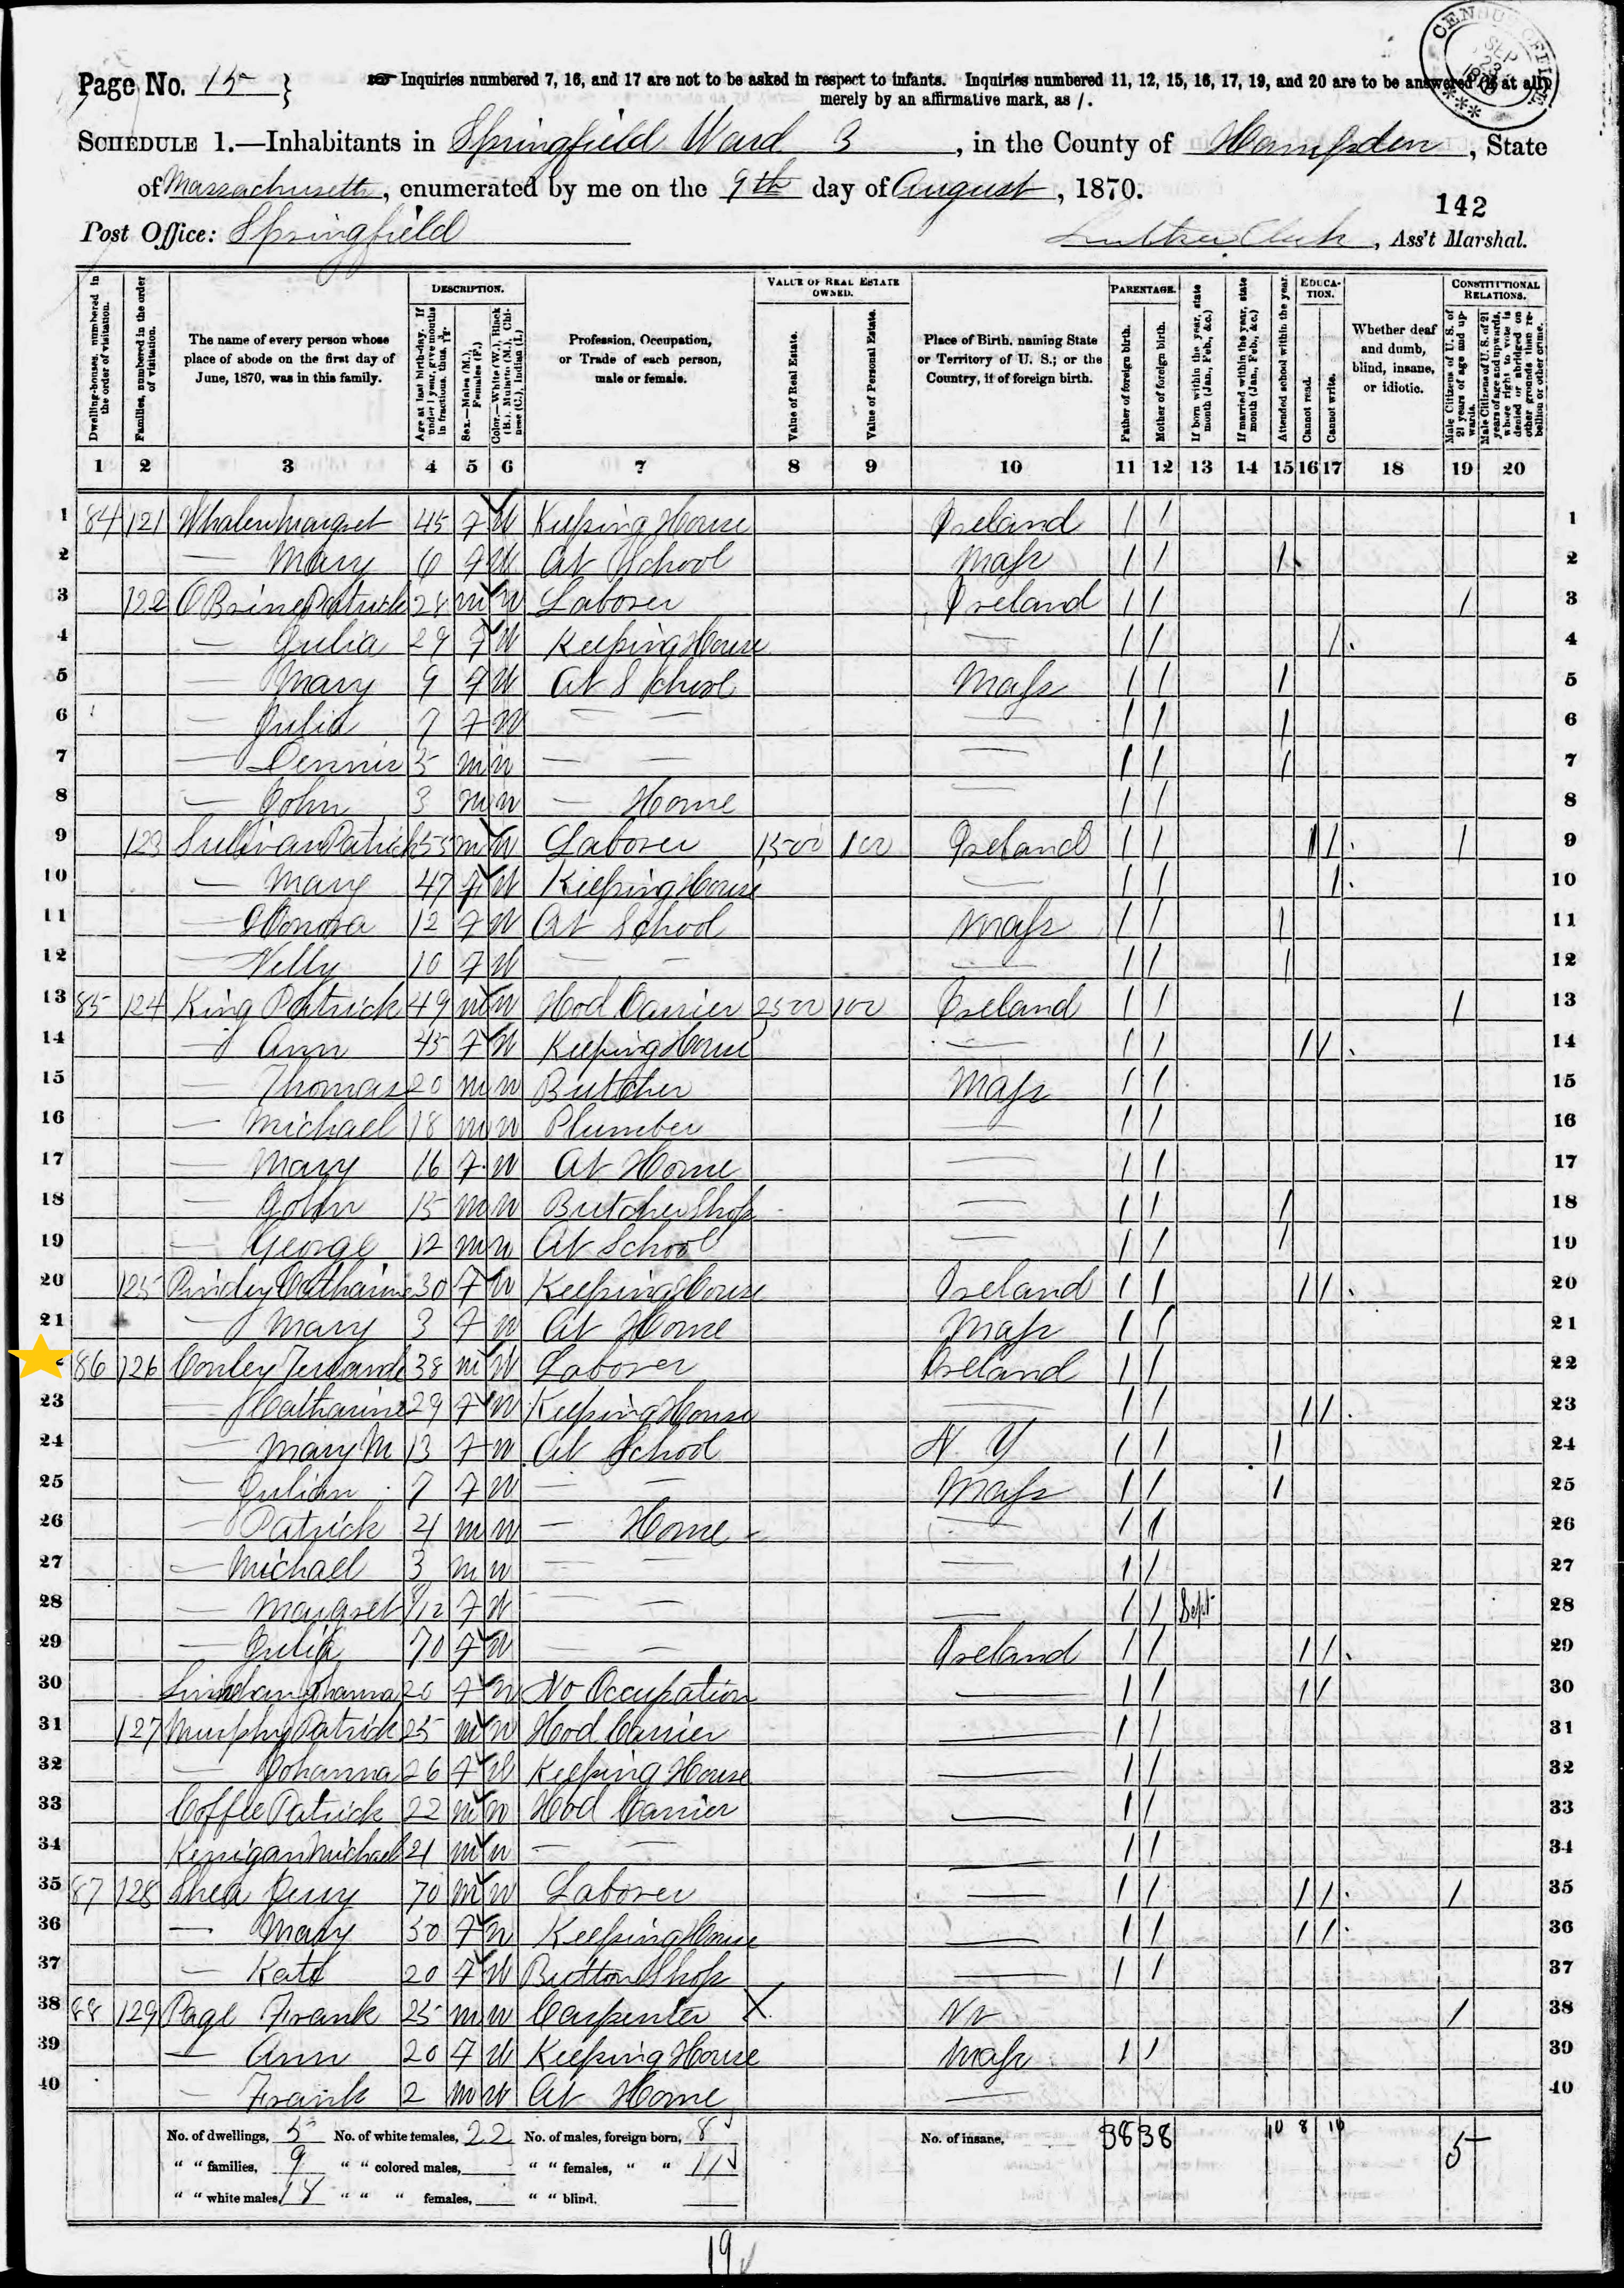 Page No. 15 } Inquiries numbered 7, 16, and 17 are not to be asked in respect to infants. Inquiries numbered 11, 12, 15, 16, 17, 19, and 20 are to be answered (if at all)
merely by an affirmative mark, as /.
SCHEDULE 1.—Inhabitants in Springfield Ward 3, in the County of Hampden, State
of Massachusetts, enumerated by me on the 9th day of August, 1870.
142
Post Office: Springfield Luther Clark, Ass't Marshal.
DESCRIPTION. VALUE OF REAL ESTATE OWNED. PARENTAGE. EDUCATION. CONSTITUTIONAL RELATIONS.
Dwelling-houses, numbered in the order of visitation.
Families, numbered in the order of visitation.
The name of every person whose place of abode on the first day of June, 1870, was in this family.
Age at last birth-day. If under 1 year, give months in fractions, thus,
Sex.—Males (M.), Females (F.)
Color.—White (W.), Black (B.), Mulatto (M.), Chinese (C.), Indian (I.)
Profession, Occupation, or Trade of each person, male or female.
Value of Real Estate.
Value of Personal Estate.
Place of Birth, naming State or Territory of U. S.; or the Country, if of foreign birth.
Father of foreign birth.
Mother of foreign birth.
If born within the year, state month (Jan., Feb., &c.)
If married within the year, state month (Jan., Feb., &c.)
Attended school within the year.
Cannot read.
Cannot write.
Whether deaf and dumb, blind, insane, or idiotic.
Male Citizens of U. S. of 21 years of age and upwards.
Male Citizens of U. S. of 21 years of age and upwards, whose right to vote is denied or abridged on other grounds than rebellion or other crime.
1 2 3 4 5 6 7 8 9 10 11 12 13 14 15 16 17 18 19 20
1 84 121 Whalen Margret 45 F W Keeping House Ireland / / 1
2 — Mary 6 F W At School Mass / / / 2
3 122 O Brine Patrick 28 M W Laborer Ireland / / / 3
4 — Julia 29 F W Keeping House — / / / 4
5 — Mary 9 F W At School Mass / / / 5
6 — Julia 7 F W — — — / / / 6
7 — Dennis 5 M W — — — / / / 7
8 — John 3 M W — Home — / / 8
9 123 Sullivan Patrick 55 M W Laborer 1500 100 Ireland / / / / / 9
10 — Mary 47 F W Keeping House — / / / 10
11 — Honora 12 F W At School Mass / / / 11
12 — Nelly 10 F W — — — / / / 12
13 85 124 King Patrick 49 M W Hod Carrier 2500 100 Ireland / / / 13
14 — Ann 45 F W Keeping House — / / / / 14
15 — Thomas 20 M W Butcher Mass / / 15
16 — Michael 18 M W Plumber — / / 16
17 — Mary 16 F W At Home — / / 17
18 — John 15 M W Butcher Shop — / / / 18
19 — George 12 M W At School — / / / 19
20 125 Catharine 30 F W Keeping House Ireland / / / / 20
21 — Mary 3 F W At Home Mass / / 21
86 126 Conley 38 M W Laborer Ireland / / 22
23 — Catharine 29 F W Keeping House — / / / / 23
24 — Mary M 13 F W At School N. Y / / / 24
25 — Julian 7 F W — — Mass / / / 25
26 — Patrick 4 M W — Home — / / 26
27 — Michael 3 M W — — — / / 27
28 — Margret /12 F W — — — / / Sept 28
29 — Julia 70 F W — — Ireland / / / / 29
30 Johanna 20 F W No Occupation — / / / / 30
31 127 Murphy Patrick 25 M W Hod Carrier — / / 31
32 — Johanna 26 F W Keeping House — / / 32
33 Coffle Patrick 22 M W Hod Carrier — / / 33
34 Kerrigan Michael 21 M W — — — / / 34
35 87 128 Shea Jerry 70 M W Laborer — / / / / / 35
36 — Mary 50 F W Keeping House — / / / / 36
37 — Kate 20 F W Button Shop — / / 37
38 88 129 Page Frank 25 M W Carpenter X / 38
39 — Ann 20 F W Keeping House Mass / / 39
40 — Frank 2 M W At Home — 40
No. of dwellings, 5 No. of white females, 22 No. of males, foreign born, 8 No. of insane, 38 38 10 8 10 5
" " families, 9 " " colored males, " " females, " " 11
" " white males, 18 " " " females, " " blind.
19